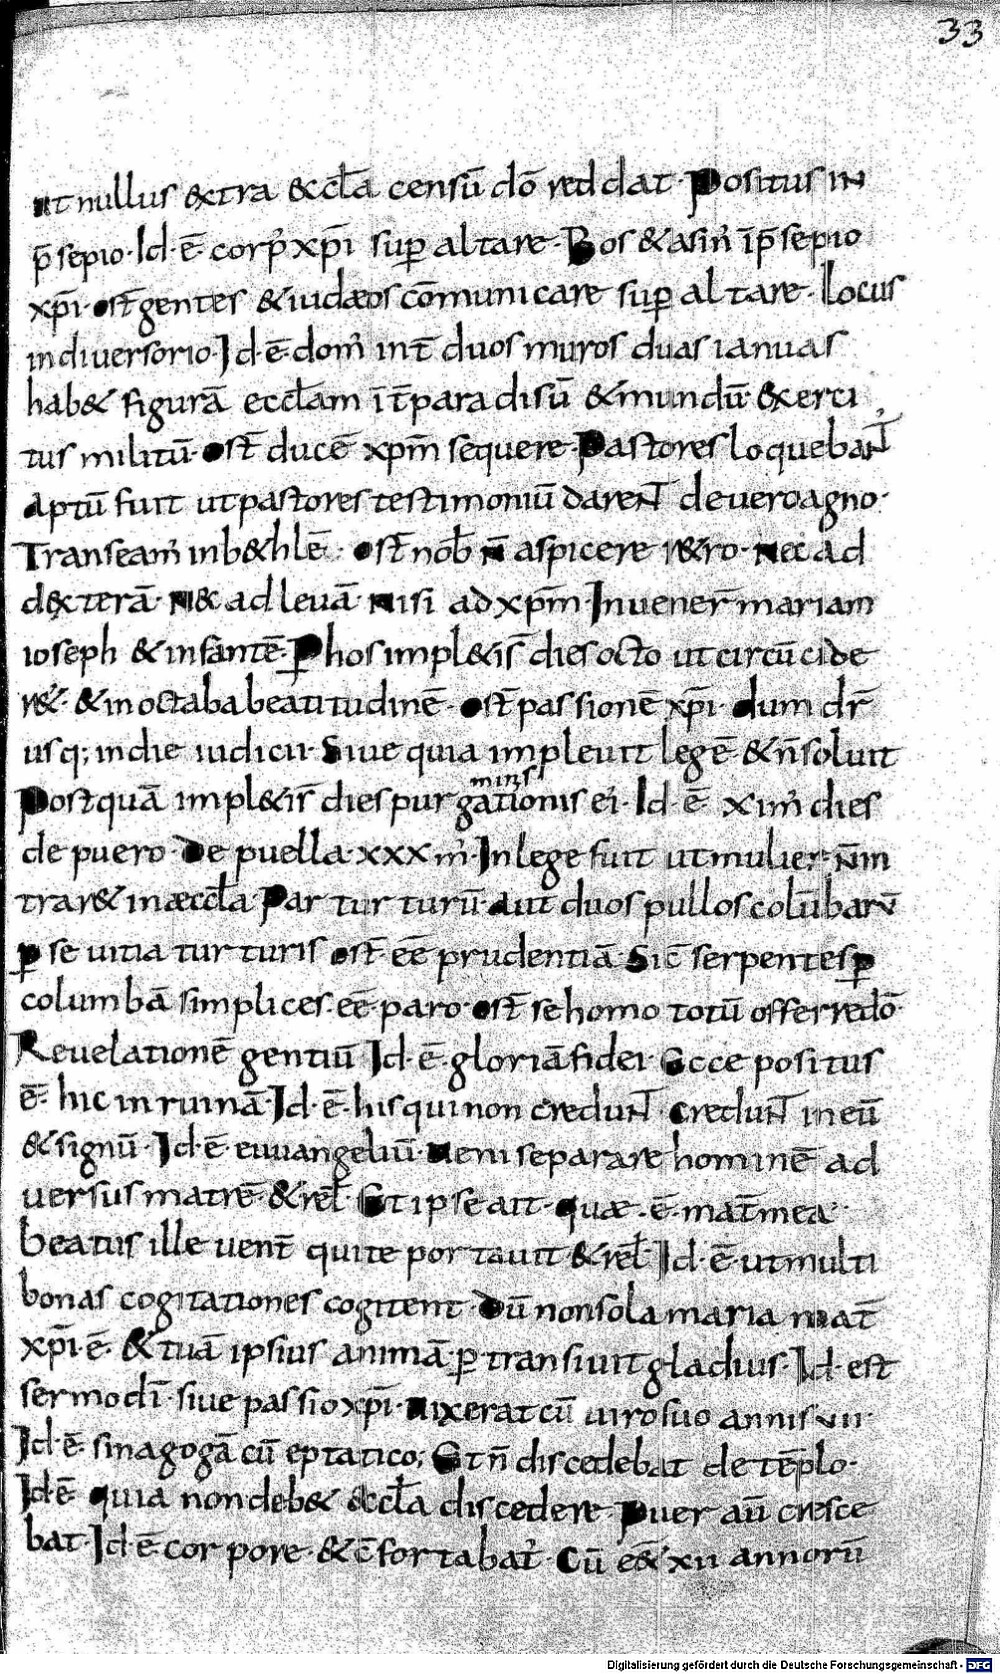 33
ut nullus &tra &cl̄a censū dō reddat. Positus in
p̄sepio. Id. ē. corp' xp̄i sup altare. Bos & asin' īp̄sepio
xp̄i. ost̄ gentes & iudæos cōmunicare sup altare. Locus
in diuersorio. Id. ē. dom' int̄ duos muros duas ianuas
hab& figurā eccl̄am īt̄ paradisū & mundū. Exerci
tus militū. ost̄ ducē xp̄m sequere. Pastores loquebanT
aptū fuit ut pastores testimoniū darenT de uero agno.
Transeam' in b&hlē. ost̄ nob̄ n̄ aspicere r&ro. nec ad
dexterā. n& ad leuā. nisi ad xp̄m. Inuener̄ mariam
ioseph & infantē. Phos impl&is̄ dies octo ut circūcide
r&'. & in octaba beatitudinē. ost̄ passionē xp̄i. dum dr̄
usq; in die iudicii. Siue quia impleuit legē & n̄ soluit
Postquā impl&is̄ dies purgationis ei'. Id. ē xim' dies
de puero. De puella. xxx m'. In lege fuit ut mulier n̄ in
trar& in æccl̄a. Par turturū. Aut duos pullos colūbarū
p se uitia turturis ost̄ eē prudentiā. Sic̄ serpentes p
columbā simplices. eē. paro. ost̄ se homo totū offerre dō.
Reuelationē gentiū Id. ē. gloriā fidei. Ecce positus
ē. hic in ruinā. Id. ē. his qui non creduNT. creduNT in eū
& signū. Id. ē euuangeliū. Ueni separare hominē ad
uersus matrē. & rel̄. Et ipse ait. quæ. ē. mat̄ mea.
beatus ille uent̄ qui te portauit & rel̄. Id. ē. ut multi
bonas cogitationes cogitent. Dū non sola maria mat̄
xp̄i. ē. & tuā ipsius animā. ptransiuit gladius. Id. est
sermo dī. siue passio xp̄i. uixerat cū uiro suo annis vii.
Id. ē. sinagogā cū eptatico; Et n̄ discedebat de tēplo.
Id. ē quia non deb& &cl̄a discedere. Puer aū cresce
bat. Id. ē corpore. & c̄fortabat'. Cū e&̄ xii annorū
Digitalisierung gefördert durch die Deutsche Forschungsgemeinschaft - DFG